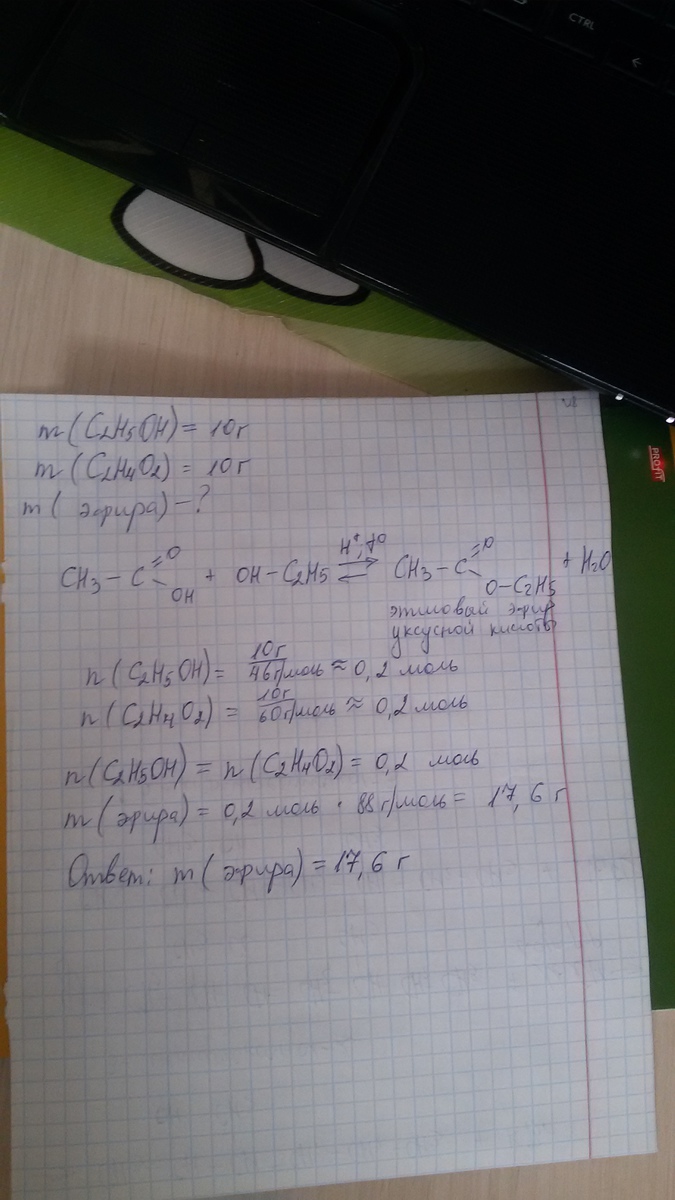 CTRL
PROFIT
m(C2H5OH) = 10г
m(C2H4O2) = 10г
m( эфира) – ?
CH3 – C =O OH + OH – C2H5 ⇌ H+, t° CH3 – C =O O–C2H5 + H2O
этиловый эфир
уксусной кислоты
n(C2H5OH) = 10г / 46г/моль ≈ 0,2 моль
n(C2H4O2) = 10г / 60г/моль ≈ 0,2 моль
n(C2H5OH) = n(C2H4O2) = 0,2 моль
m( эфира) = 0,2 моль · 88г/моль = 17,6 г
Ответ: m( эфира) = 17,6 г